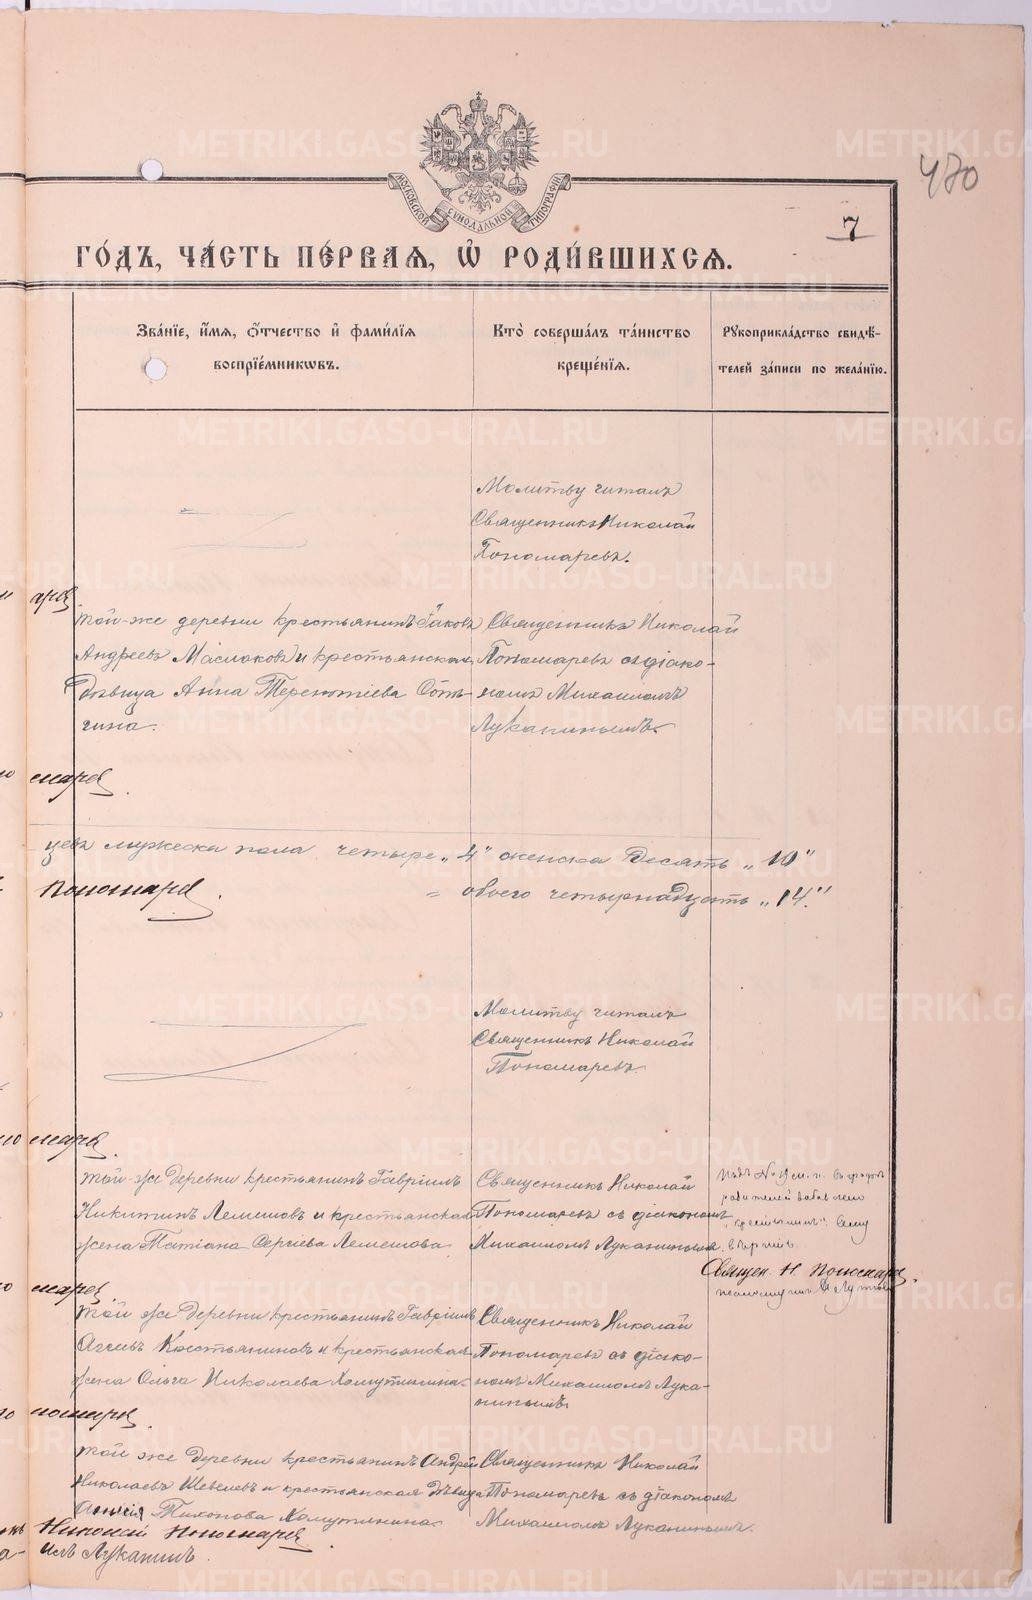 470
МОСКОВСКОЙ СѴНОДАЛЬНОЙ ТИПОГРАФІИ
7
ГО́ДЪ, ЧА́СТЬ ПЕ́РВАЯ, Ѡ҆ РОДИ́ВШИХСЯ.
Зва́нїе, и҆́мя, ѻ҆́тчество и҆ фами́лїя
воспрїе́мникѡвъ.
Кто̀ соверша́лъ та́инство
креще́нїя.
Рꙋкоприкла́дство свидѣ́-
телей за́писи по жела́нїю.
Молитву читалъ
Священникъ Николай
Пономаревъ.
Той-же деревни крестьянинъ Іаковъ
Андреевъ Маслаковъ и крестьянская
дѣвица Анна Терентіева Сотъ-
чина.
Священникъ Николай
Пономаревъ съ діако-
номъ Михаиломъ
Луканинымъ.
цевъ мужеска пола четыре „4“ женска десять „10“
Пономарев
= обоего четырнадцать „14.“
Молитву читалъ
Священникъ Николай
Пономаревъ.
Той-же деревни крестьянинъ Гавріилъ
Никитинъ Лемешовъ и крестьянская
жена Татіана Сергіева Лемешова.
Священникъ Николай
Пономаревъ съ діакономъ
Михаиломъ Луканинымъ.
родителей
Священ. Н. Пономарев
Той же деревни крестьянинъ Гавріилъ
Агеевъ Крестьяниновъ и крестьянская
жена Ольга Николаева Хомутинина.
Священникъ Николай
Пономаревъ съ діако-
номъ Михаиломъ Лука-
нинымъ
Той же деревни крестьянинъ Андрей
Николаевъ Шевелевъ и крестьянская дѣвица
Анисія Тихонова Хомутинина.
Священникъ Николай
Пономаревъ съ діакономъ
Михаиломъ Луканинымъ.
Николай Пономарев
илъ Луканинъ
METRIKI.GASO-URAL.RU